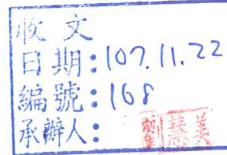 收文
日期:107.11.22
編號:168
承辦人:
劉慧美